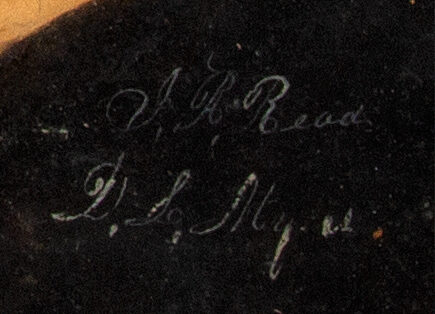 J. R. Read
D. S. Myers